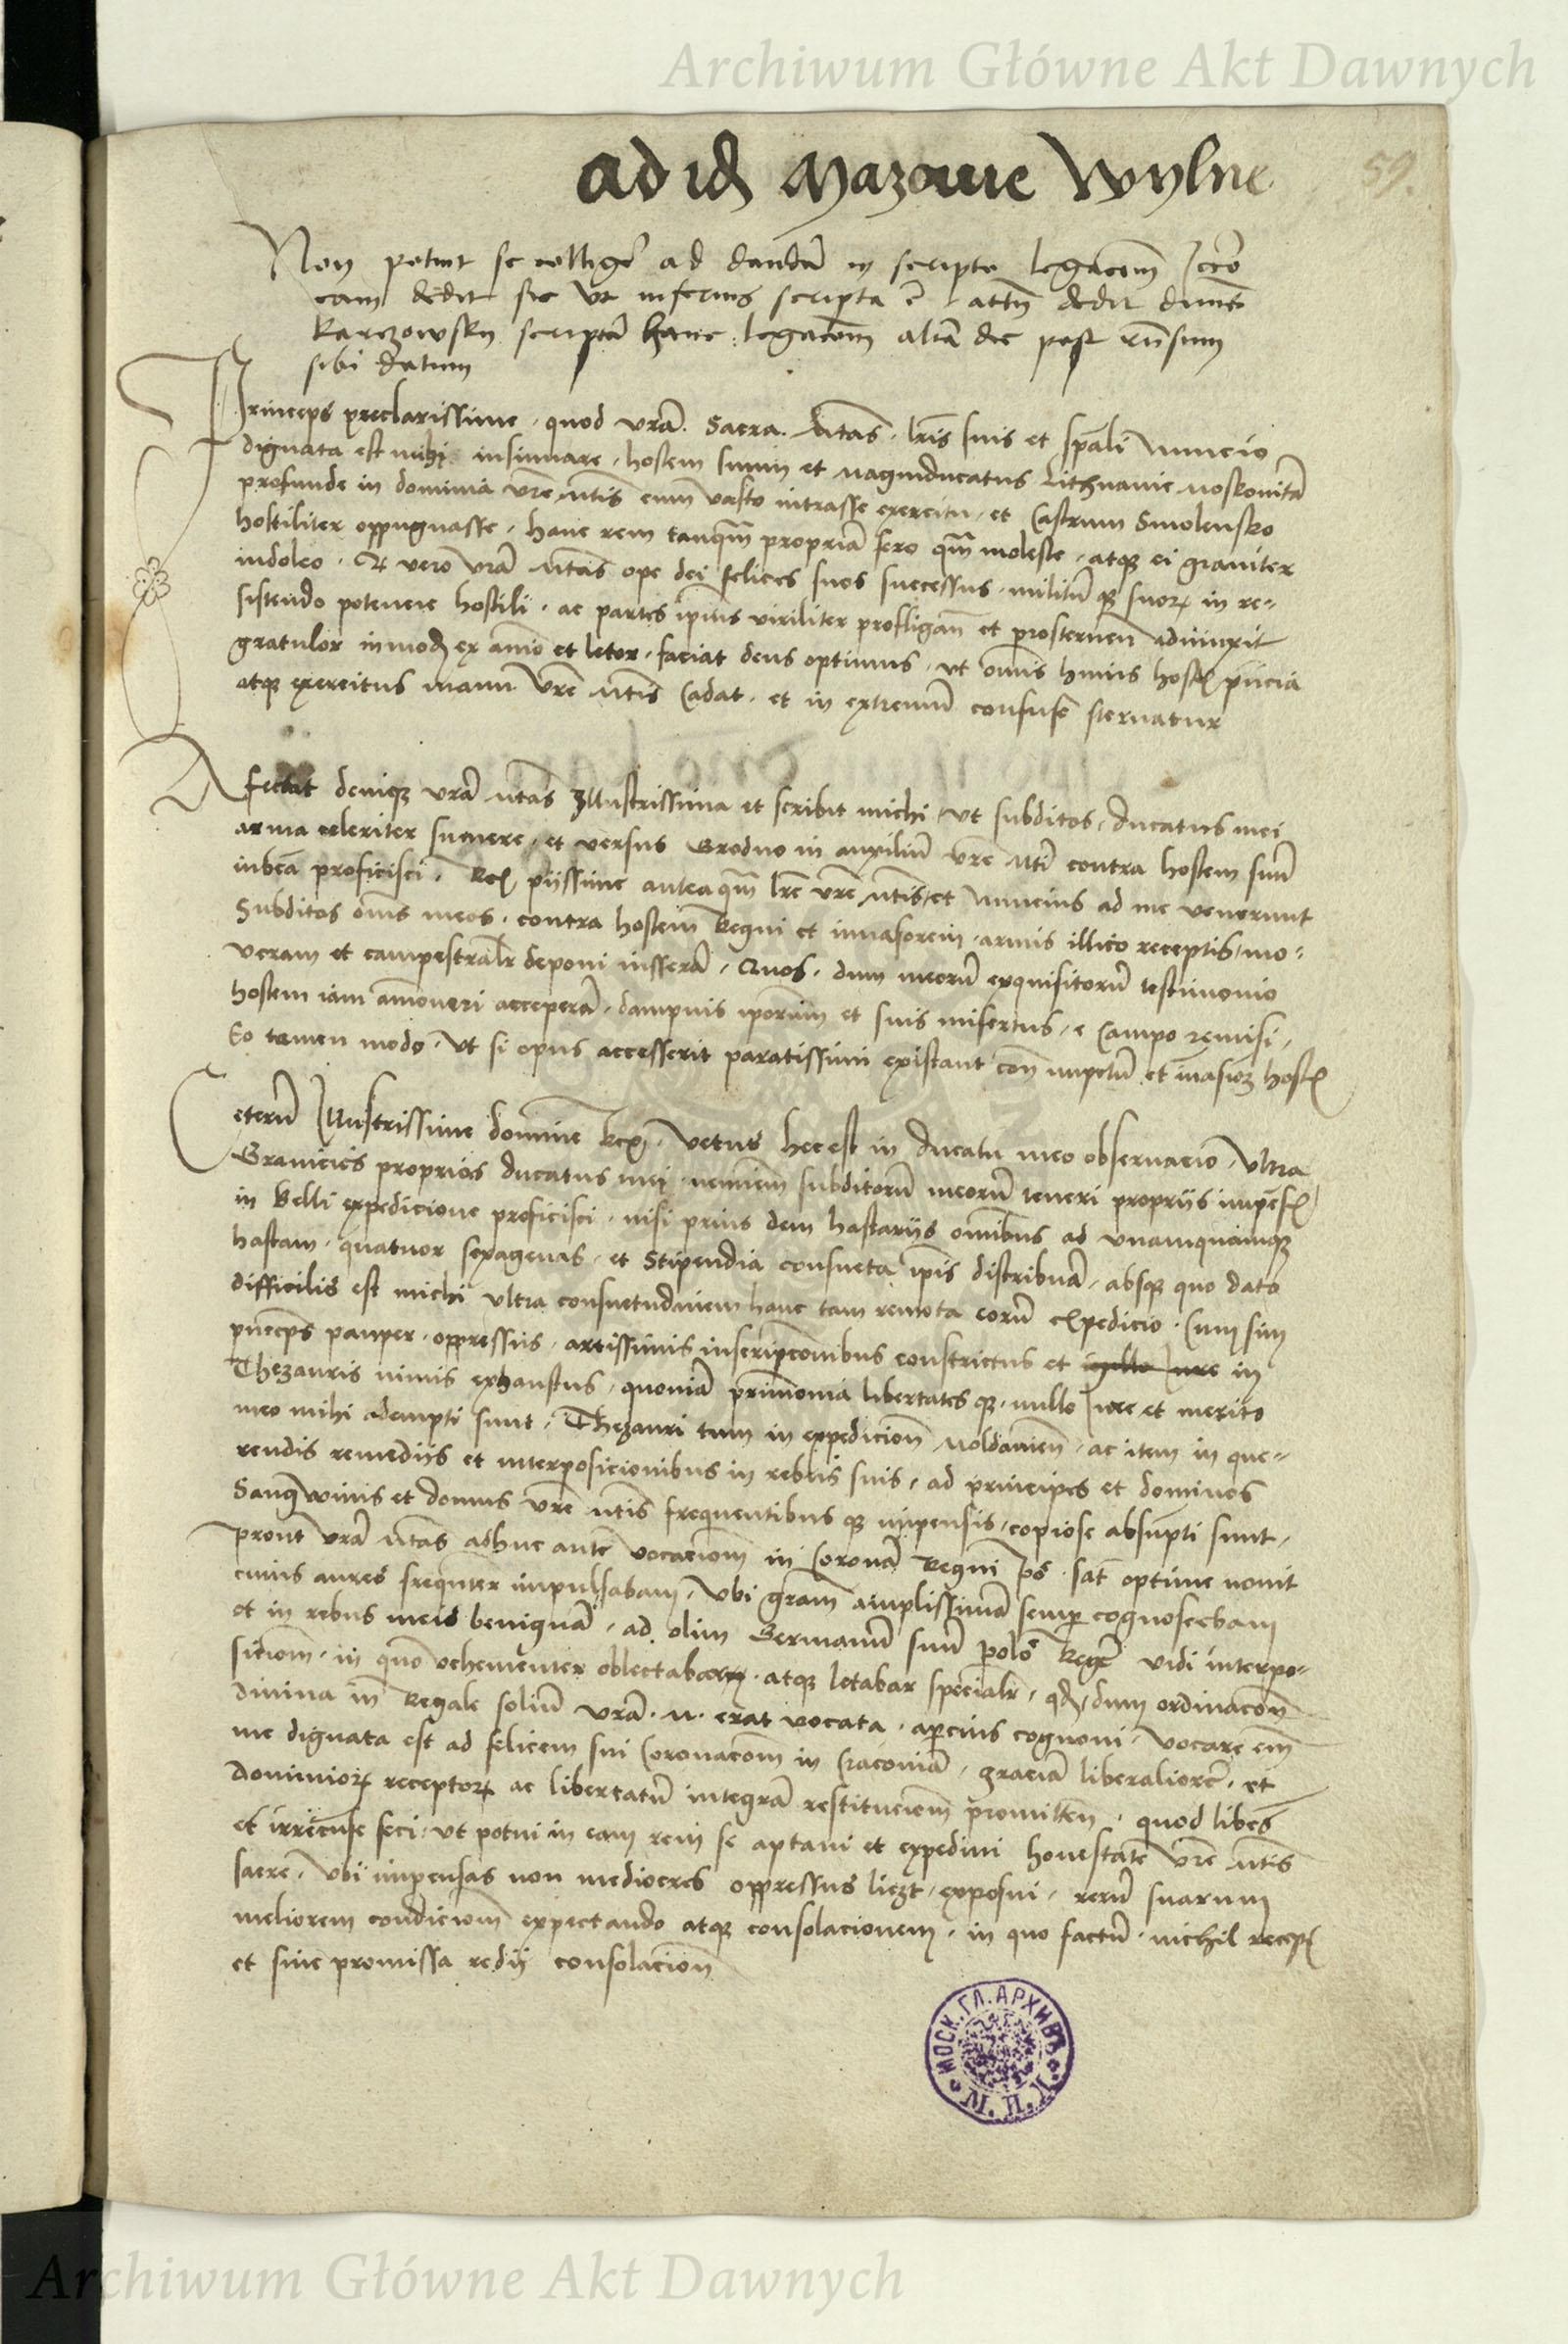 Archiwum Główne Akt Dawnych
ad id Mazovie Wylne
59.
Non potuit se colligere ad dandā in scripto legacōem Iccō
eam dedit sic ut inferius scripta ē attn dedit dimēs
Karczowsky scriptā hanc legacōem aliā dec post rn̄sum
sibi datum
Princeps preclarissime · quod vrā · Sacra · Mtas · lrīs suis et spāli Nuncio
dignata est mihi insinuare · hostem suum et magniducatus Lithuanie moskovitā
profunde in dominia vrē mtis cum vasto intrasse exercitu · et Castrum Smolensko
hostiliter oppugnasse · hanc rem tanqm̄ propriā fero qm̄ moleste · atque ei graviter
indoleo · Et vero vrā mtas ope dei felices suos successus · militū que suor̄ in re-
sistendo potencie hostili · ac partes ipius viriliter profligan̄ et prosternen̄ adiunxit
gratulor inmod̄ ex aīmo et letor · faciat deus optimus · ut om̄is huius host pn̄cia
atque exercitus manu vrē mtis Cadat · et in extremū confusē sternatur
Affectat denique vrā mtas Illustrissima et scribit michi · ut subditos · ducatus mei
arma celeriter sumere · et versus Grodno in auxiliū vrē mti contra hostem suū
iubeā proficisci · Rex piissime anteaqm̄ lrē vrē mtis et Nuncius ad me venerunt
Subditos om̄is meos · contra hostem Regni et invasorem · armis illico receptis mo-
veram et campestralr̄ deponi iusserā · Quos · dum meorū exquisitorū testimonio
hostem iam amoveri acceperā · dampnis iporum et suis misertus · e Campo remisi ·
Eo tamen modo · ut si opus accesserit paratissimi existant con̄ impetū et invasion̄ host
Ceterū Illustrissime domine Rex · vetus hec est in ducatu meo observacio · ultra
Granicies proprios ducatus mei · neminem subditorū meorū teneri propriis impens
in Belli expedicione proficisci · nisi prius dem hastariis om̄ibus ad unamquamque
hastam · quatuor sexagenas · et Stipendia consueta ip̄is distribuā · absque quo dato
difficilis est michi ultra consuetudinem hanc tam remota eorū expedicio · Cum sim
princeps pauper · oppressus · artissimis inscripcōnibus constrictus et in
Thezauris nimis exhaustus · quoniā prīmonia libertates que · nullo Iure et merito
meo mihi adempti sunt · Thezauri tum in expedicion̄ moldavien̄ · ac item in que-
rendis remediis et interposicionibus in rebus suis · ad principes et dominos
Sangwinis et domus vrē mtis frequentibus que impensis · copiose absūpti sunt ·
prout vrā mtas adhuc ante vocacionem in Coronā Regni Po · sat optime novit
cuius aures frequnter impulsabam · ubi gram amplissimā semper cognoscebam
et in rebus meis benignā · ad olim Germanū suū polo Regē vidi interpo-
sicionem · in quo vehementer oblectabar · atque letabar specialr̄ · qd dum ordinacōn
divina in Regale soliū vrā · m · erat vocata · aperciu cognovi · Vocare em̄
me dignata est ad felicem sui Coronacōem in Cracoviā · graciā liberaliorē · et
dominior̄ receptor̄ ac libertatū integrā restitucionem promitten̄ · quod libēs
et irrecuse feci · ut potui in eam rem se aptavi et expedivi honestate vrē mtis
sacre · ubi impensas non mediocres oppressus liczt · exposui · rerū suarum
meliorem condicionem expectando atque consolacionem · in quo factū · nichil recepi
et sine promissa redii consolacion̄
МОСК. ГЛ. АРХИВЪ М. И. Д.
Archiwum Główne Akt Dawnych